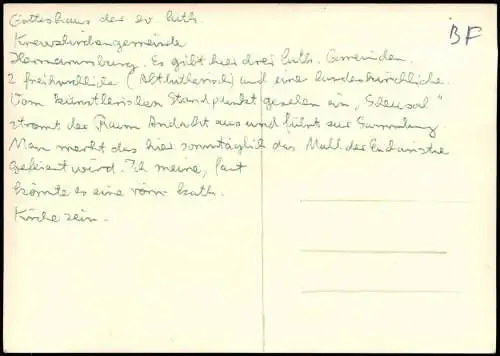 Gotteshaus der ev. luth.
BF
Kreuzkirchengemeinde
Hermannsburg. Es gibt hier drei luth. Gemeinden.
2 freikirchliche (Altlutherisch) und eine landeskirchliche.
Vom künstlerischen Standpunkt gesehen ein „Scheusal"
strömt der Raum Andacht aus und führt zur Sammlung.
Man merkt das hier sonntäglich das Mahl der Eucharistie
gefeiert wird. Ich meine, fast
könnte es eine röm. kath.
Kirche sein.